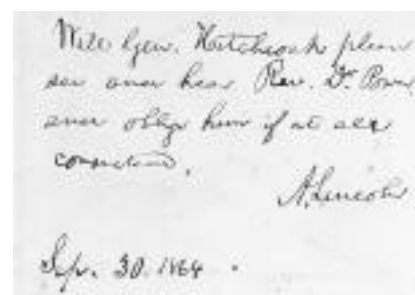 Will Gen. Hitchcock please
see and hear Rev. Dr.
and oblige him if at all
consistent.
A. Lincoln
Sep. 30. 1864.